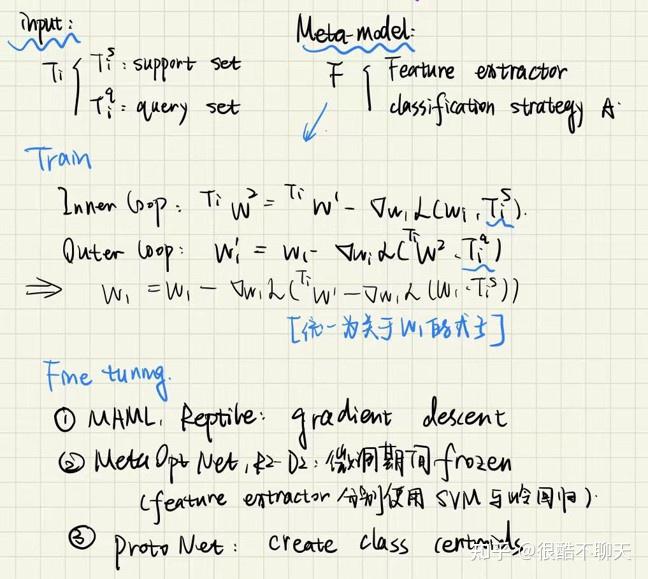 input:
Ti { Ti^s: support set
Ti^q: query set
Meta-model:
F { Feature extractor
classification strategy A.
Train
Inner loop: Ti W² = Ti W' − ∇w₁L(w₁, Ti^s).
Outer loop: w₁' = w₁ − ∇w₁L(Ti W², Ti^q)
⇒ w₁ = w₁ − ∇w₁L(Ti W' − ∇w₁L(w₁, Ti^s))
[统一为关于W₁的式子]
Fine tuning.
① MAML, Reptile: gradient descent
② MetaOptNet, R2-D2: 微调期间frozen
(feature extractor 分别使用 SVM 与岭回归).
③ ProtoNet: create class centroids
知乎 @很酷不聊天